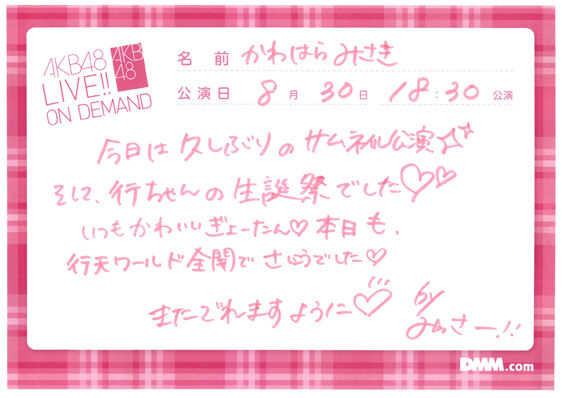 AKB48
LIVE!!
ON DEMAND
AKB
48
名 前 かわはらみさき
公演日 8月 30日 18:30 公演
今日は久しぶりのサムネイル公演☆
そして、行ちゃんの生誕祭でした♡♡
いつもかわいいぎょーたん♡本日も、
行天ワールド全開でさいこうでした♡
またでれますように♡
by
みぃさー!!
DMM.com